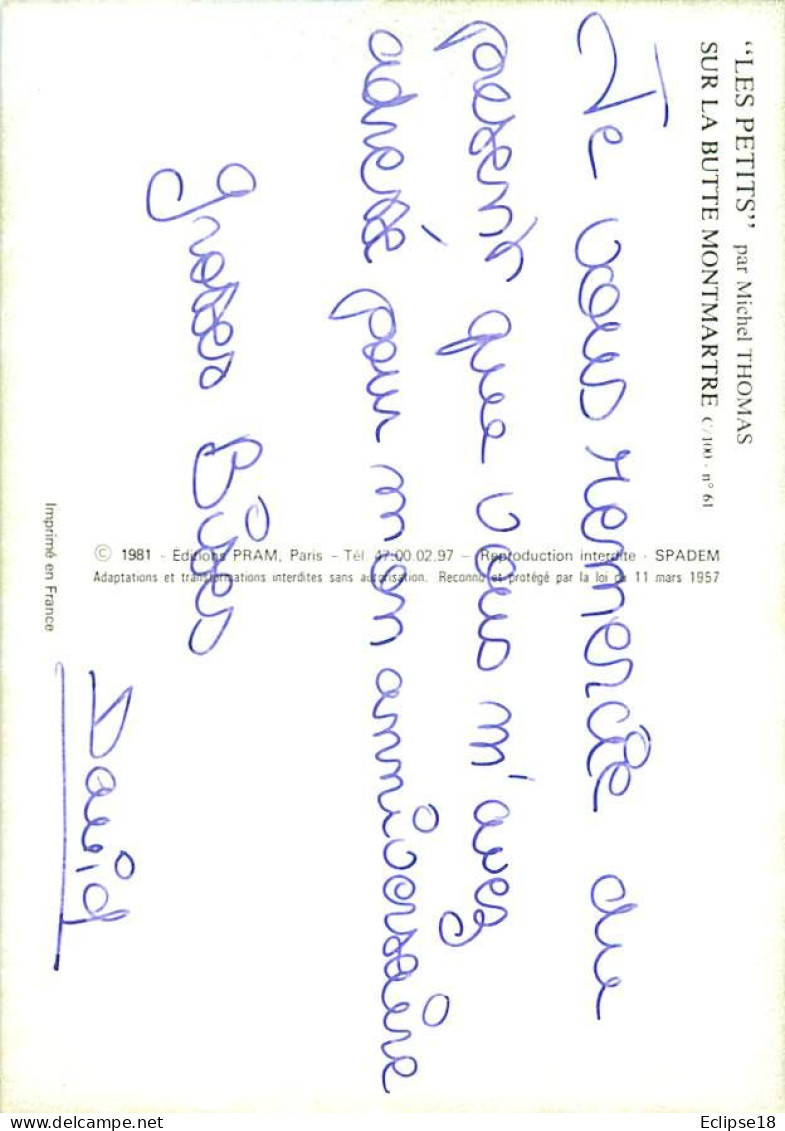 “LES PETITS” par Michel THOMAS
SUR LA BUTTE MONTMARTRE C/100 - n° 61
Je vous remercie du
present que vous m'avez
adressé pour mon anniversaire
grosses Bises
David
© 1981 - Editions PRAM, Paris – Tél. 47.00.02.97 – Reproduction interdite - SPADEM
Adaptations et transformations interdites sans autorisation. Reconnu et protégé par la loi du 11 mars 1957
Imprimé en France
Eclipse18